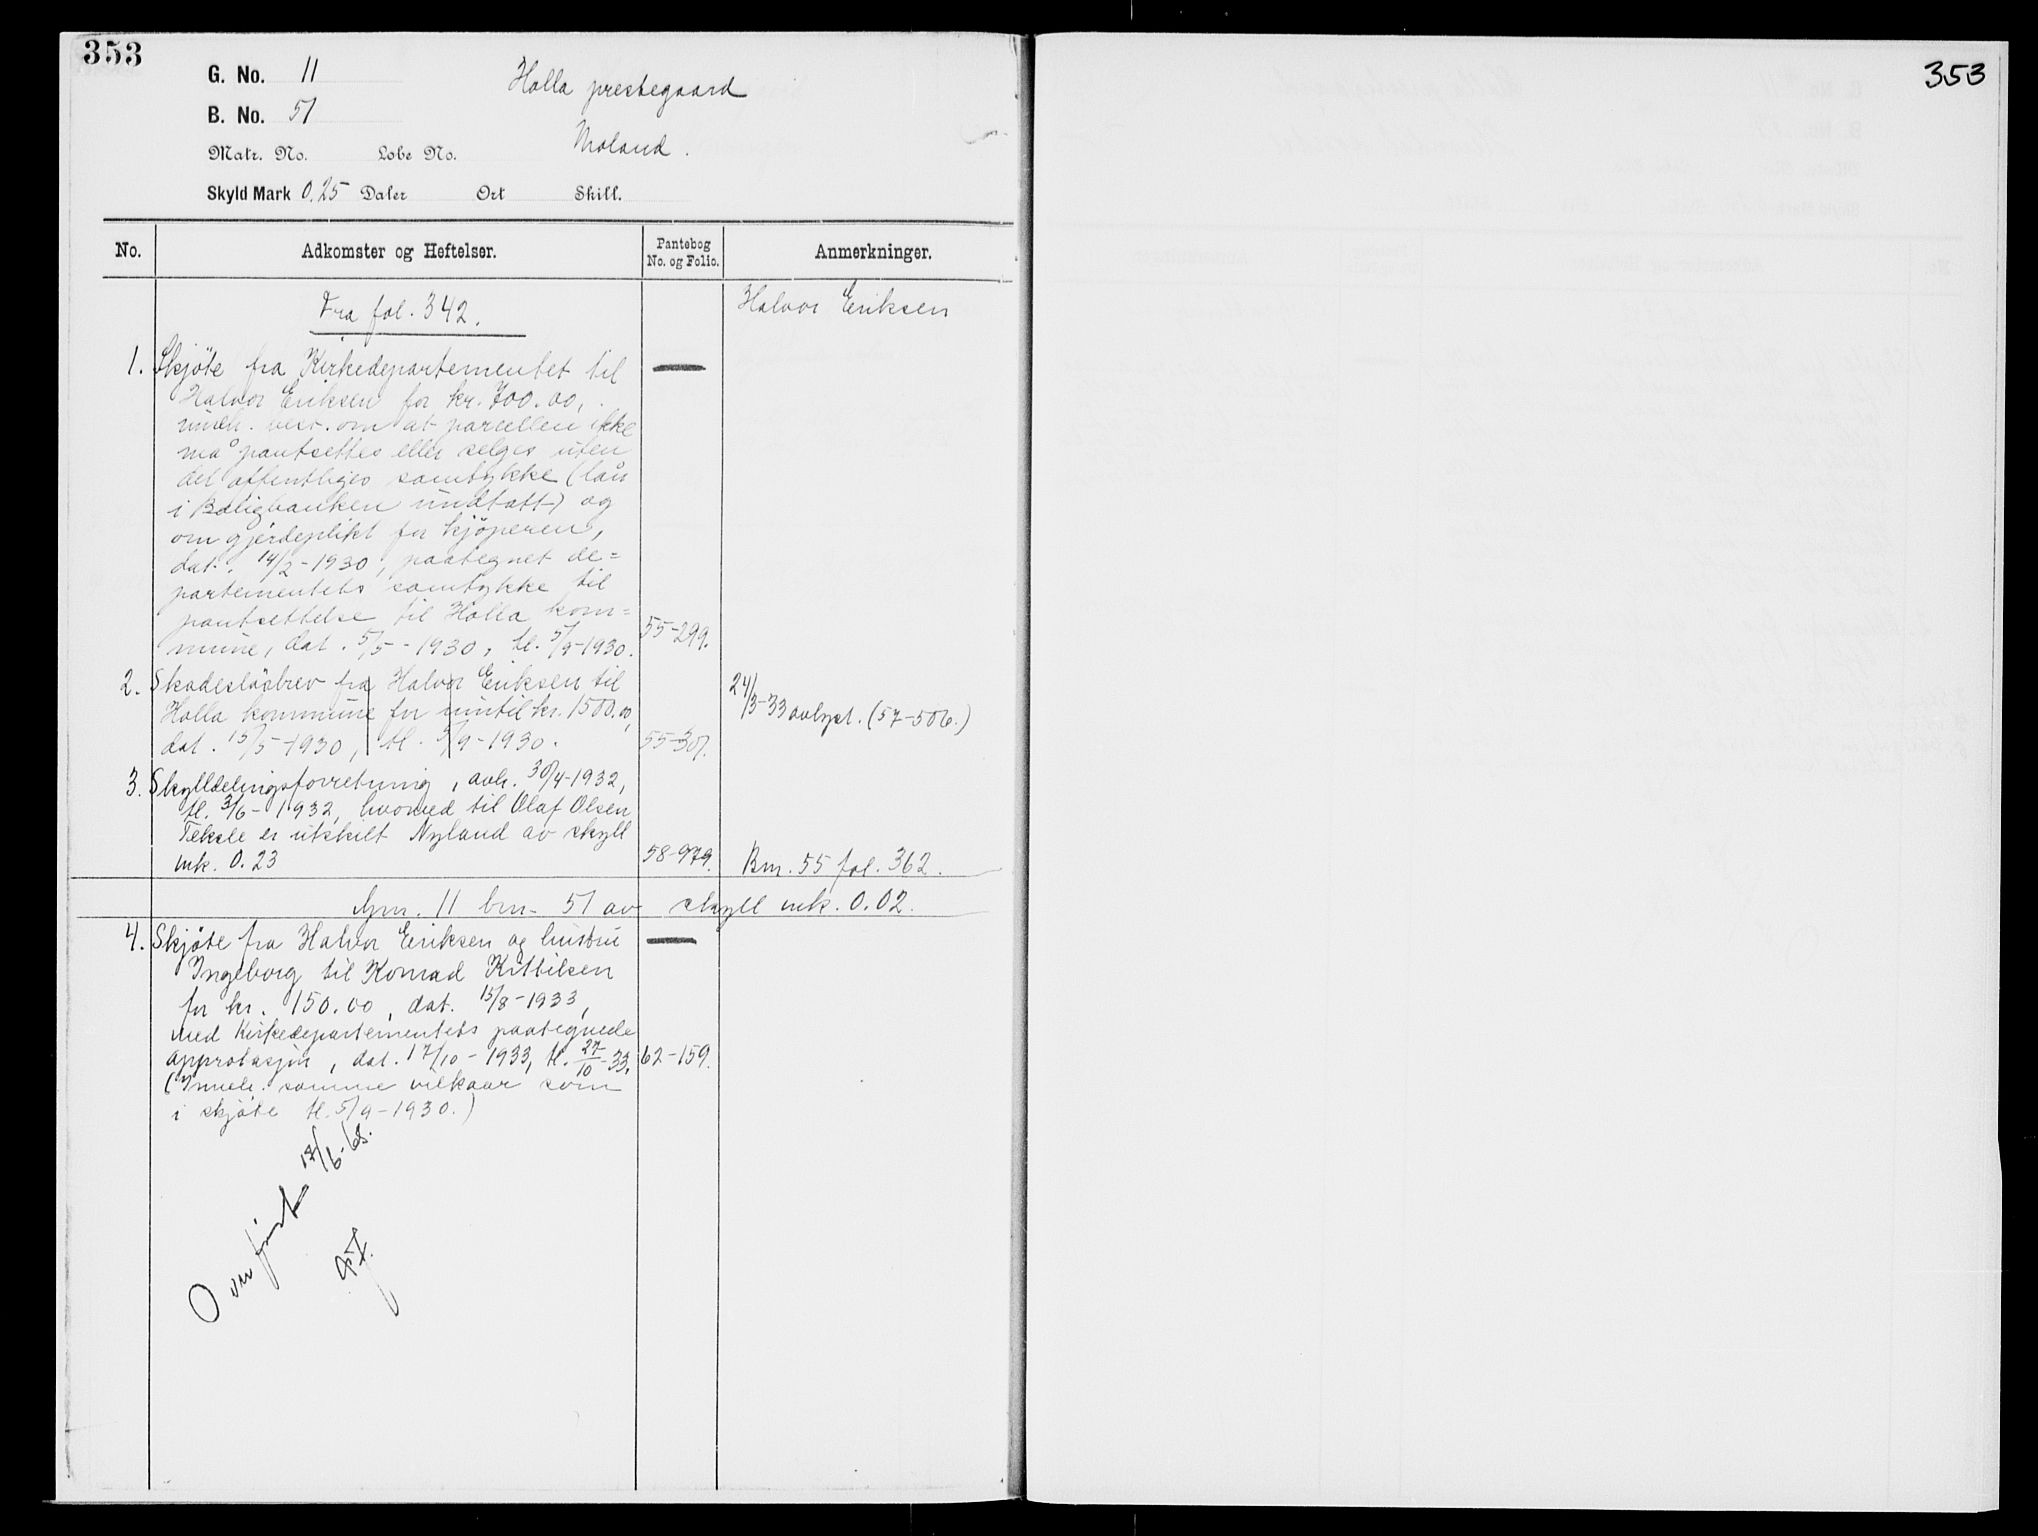 353
G. No. 11
Holla prestegaard
B. No. 51
Moland.
Matr. No. Løbe No.
Skyld Mark 0.25 Daler Ort Skill.
No. Adkomster og Heftelser. Pantebog No. og Folio. Anmerkninger.
Fra fol. 342.
Halvor Eriksen
1. Skjöte fra Kirkedepartementet til
Halvor Eriksen for kr. 700.00,
om at parcellen ikke
må pantsettes eller selges uten
det offentliges samtykke (lån
i Boligbanken undtatt) og
om gjerdeplikt for kjöperen,
dat. 14/2-1930, paategnet de=
partementets samtykke til
pantsettelse til Holla kom=
mune, dat. 5/5-1930, tl. 5/9-1930. 55-299.
2. Skadeslösbrev fra Halvor Eriksen til
Holla kommune for inntil kr. 1500.00,
dat. 15/5-1930, tl. 5/9-1930. 55-301.
24/3-33 avlyst. (57-506.)
3. Skylldelingsforretning, avh. 30/4-1932,
tl. 3/6-1932, hvorved til Olaf Olsen
Teksle er utskilt Nyland av skyll
mk. 0.23 58-979. Bnr. 55 fol. 362.
Gnr. 11 bnr. 51 av skyll mk. 0.02.
4. Skjöte fra Halvor Eriksen og hustru
Ingeborg til Konrad Kittilsen
for kr. 150.00, dat. 15/8-1933,
med Kirkedepartementets paategnede
approbasjon, dat. 17/10-1933, tl. 27/10-33. 62-159.
(Inneh. samme vilkaar som
i skjöte tl. 5/9-1930.)
Overført 18/6-68.
353